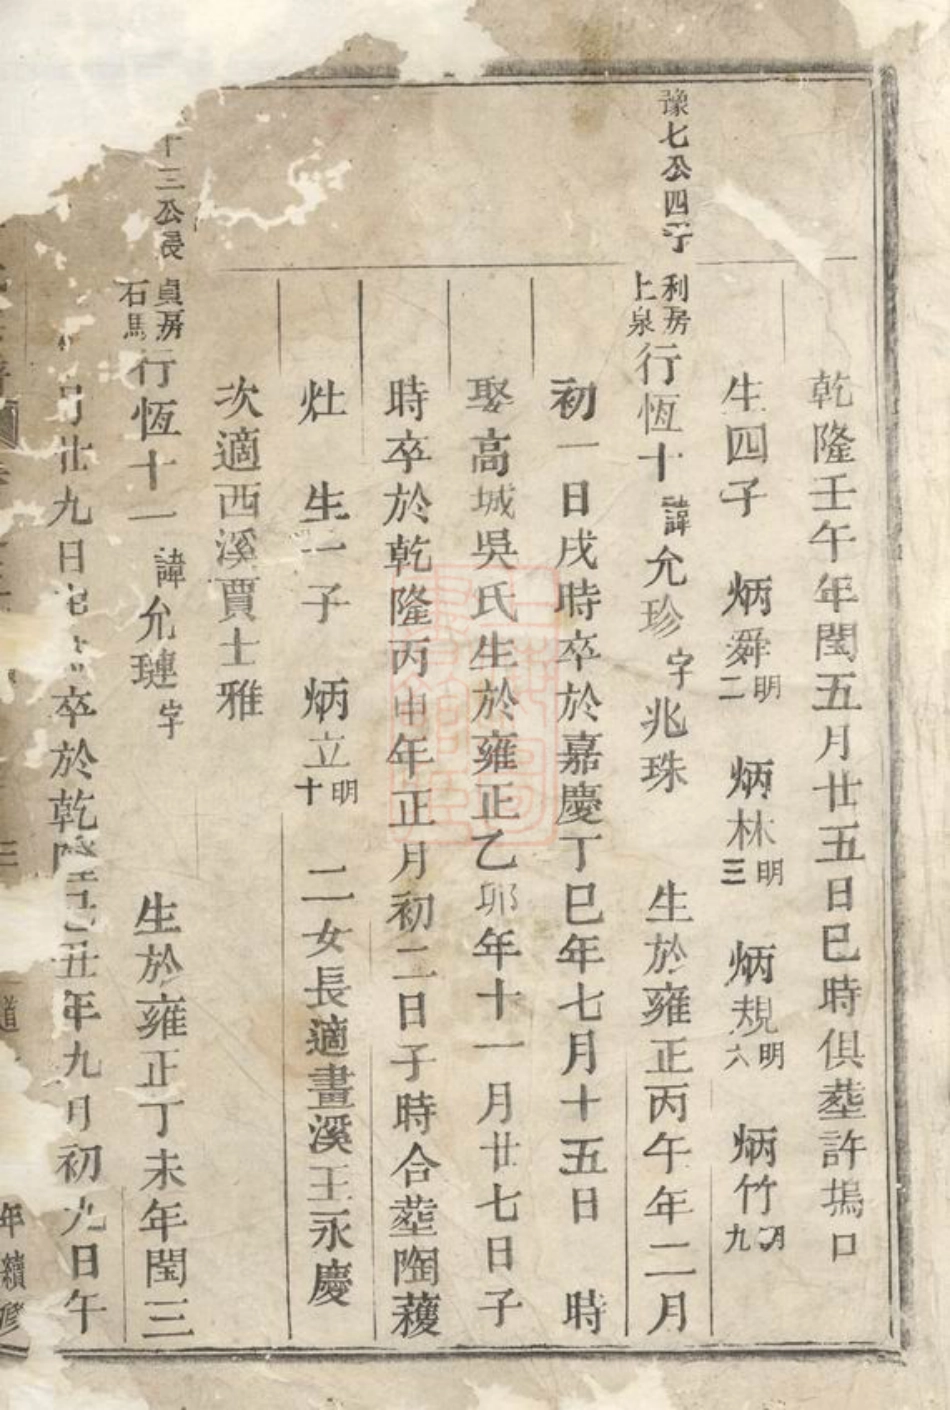 乾隆壬午年閏五月廿五日巳時俱塟許塢口
生四子 炳舜明二 炳林明三 炳規明六 炳竹明九
豫七公四子 利房上泉 行恆十 諱允珍 字兆珠 生於雍正丙午年二月
初一日戌時卒於嘉慶丁巳年七月十五日 時
娶高城吳氏生於雍正乙卯年十一月廿七日子
時卒於乾隆丙申年正月初二日子時合塟陶
灶 生一子 炳立明十 二女長適畫溪王永慶
次適西溪賈士雅
十三公長 貞房石馬 行恆十一 諱允璉 字 生於雍正丁未年閏三
月廿九日 卒於乾隆 丑年九月初九日午
道 年續修